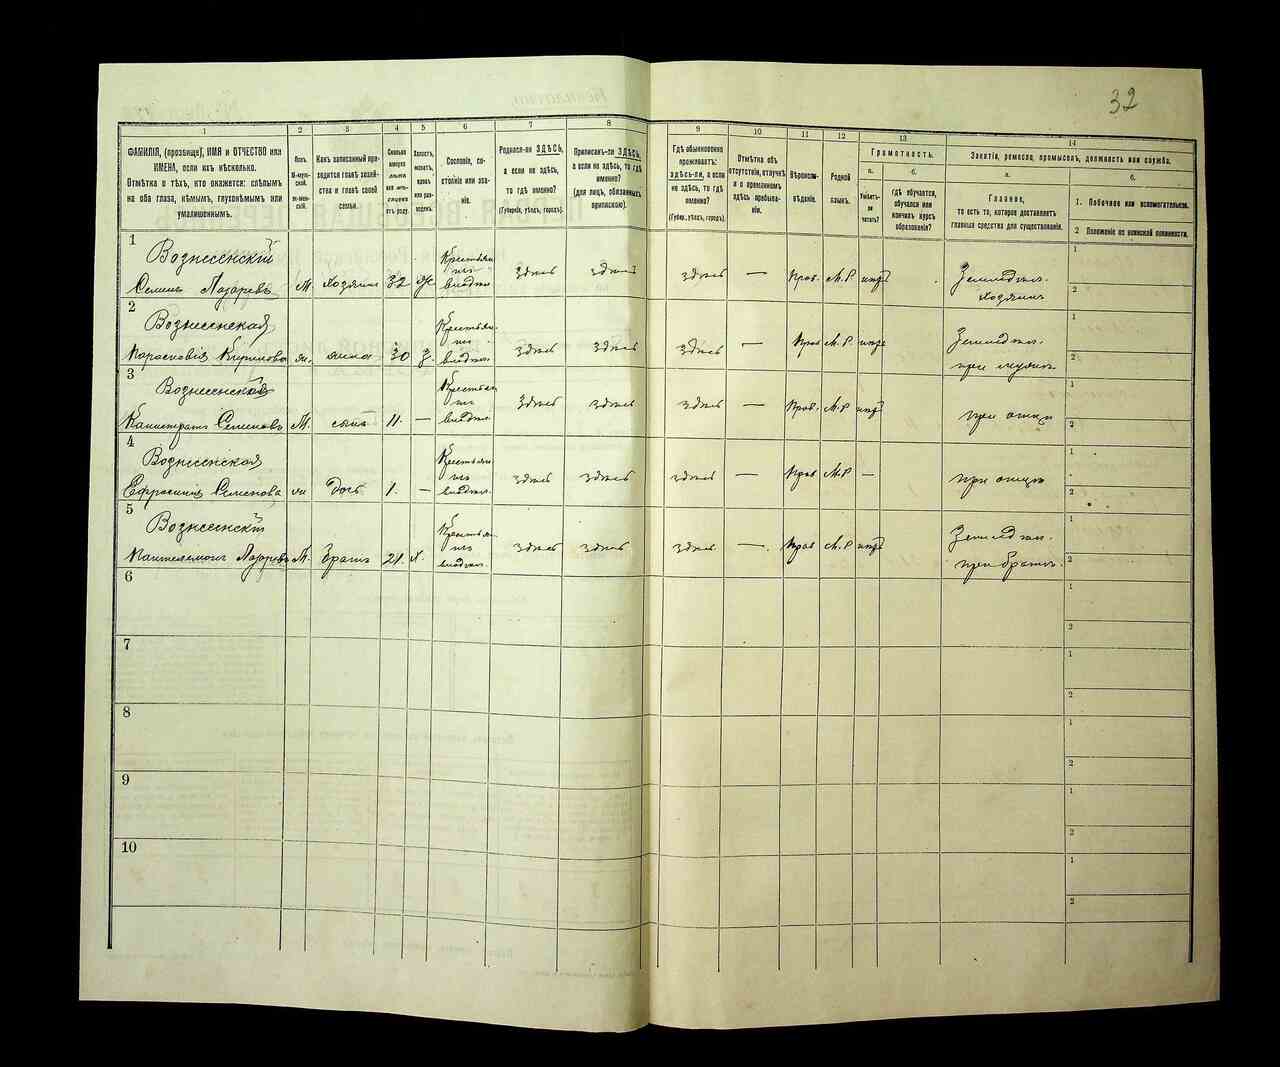 32
1 2 3 4 5 6 7 8 9 10 11 12 13 14
ФАМИЛІЯ, (прозвище), ИМЯ и ОТЧЕСТВО или
ИМЕНА, если ихъ нѣсколько.
Отмѣтка о тѣхъ, кто окажется: слѣпымъ
на оба глаза, нѣмымъ, глухонѣмымъ или
умалишеннымъ.
Полъ.
М-мужской.
Ж-женскій.
Какъ записанный приходится
главѣ хозяйства
и главѣ своей
семьи.
Сколько
минуло
лѣтъ
или мѣсяцевъ
отъ роду.
Холостъ,
женатъ,
вдовъ
или разведенъ.
Сословіе, состояніе
или званіе.
Родился-ли ЗДѢСЬ,
а если не здѣсь,
то гдѣ именно?
(Губернія, уѣздъ, городъ).
Приписанъ-ли ЗДѢСЬ,
а если не здѣсь, то гдѣ
именно?
(для лицъ, обязанныхъ
припискою).
Гдѣ обыкновенно
проживаетъ:
здѣсь-ли, а если
не здѣсь, то гдѣ
именно?
(Губер., уѣздъ, городъ).
Отмѣтка объ
отсутствіи, отлучкѣ
и о временномъ
здѣсь пребываніи.
Вѣроисповѣданіе.
Родной
языкъ.
Грамотность.
а.
Умѣетъ-ли
читать?
б.
гдѣ обучается,
обучался или
кончилъ курсъ
образованія?
Занятіе, ремесло, промыселъ, должность или служба.
а.
Главное,
то есть то, которое доставляетъ
главныя средства для существованія.
б.
1. Побочное или вспомогательное.
2 Положеніе по воинской повинности.
1 Вознесенскій
Семенъ Лазаревъ М хозяинъ 32 Ж здѣсь здѣсь здѣсь — Прав. М.Р.
Земледѣл.
хозяинъ
1
2
2 Вознесенская
Парасковія жена 30 З. здѣсь здѣсь здѣсь — Прав М.Р
Земледѣл.
при мужѣ
1
2
3 Вознесенскій
Семеновъ М. сынъ 11. — здѣсь здѣсь здѣсь — Прав. М.Р
при отцѣ
1
2
4 Вознесенская
Ефросинія Семенова дочь 1. — здѣсь здѣсь здѣсь — Прав М.Р —
при отцѣ
1
2
5 Вознесенскій
Пантелемонъ Лазаревъ М. братъ 21. Х. здѣсь здѣсь здѣсь — Прав М.Р
Земледѣл.
при братѣ.
1
2
6
1
2
7
1
2
8
1
2
9
1
2
10
1
2